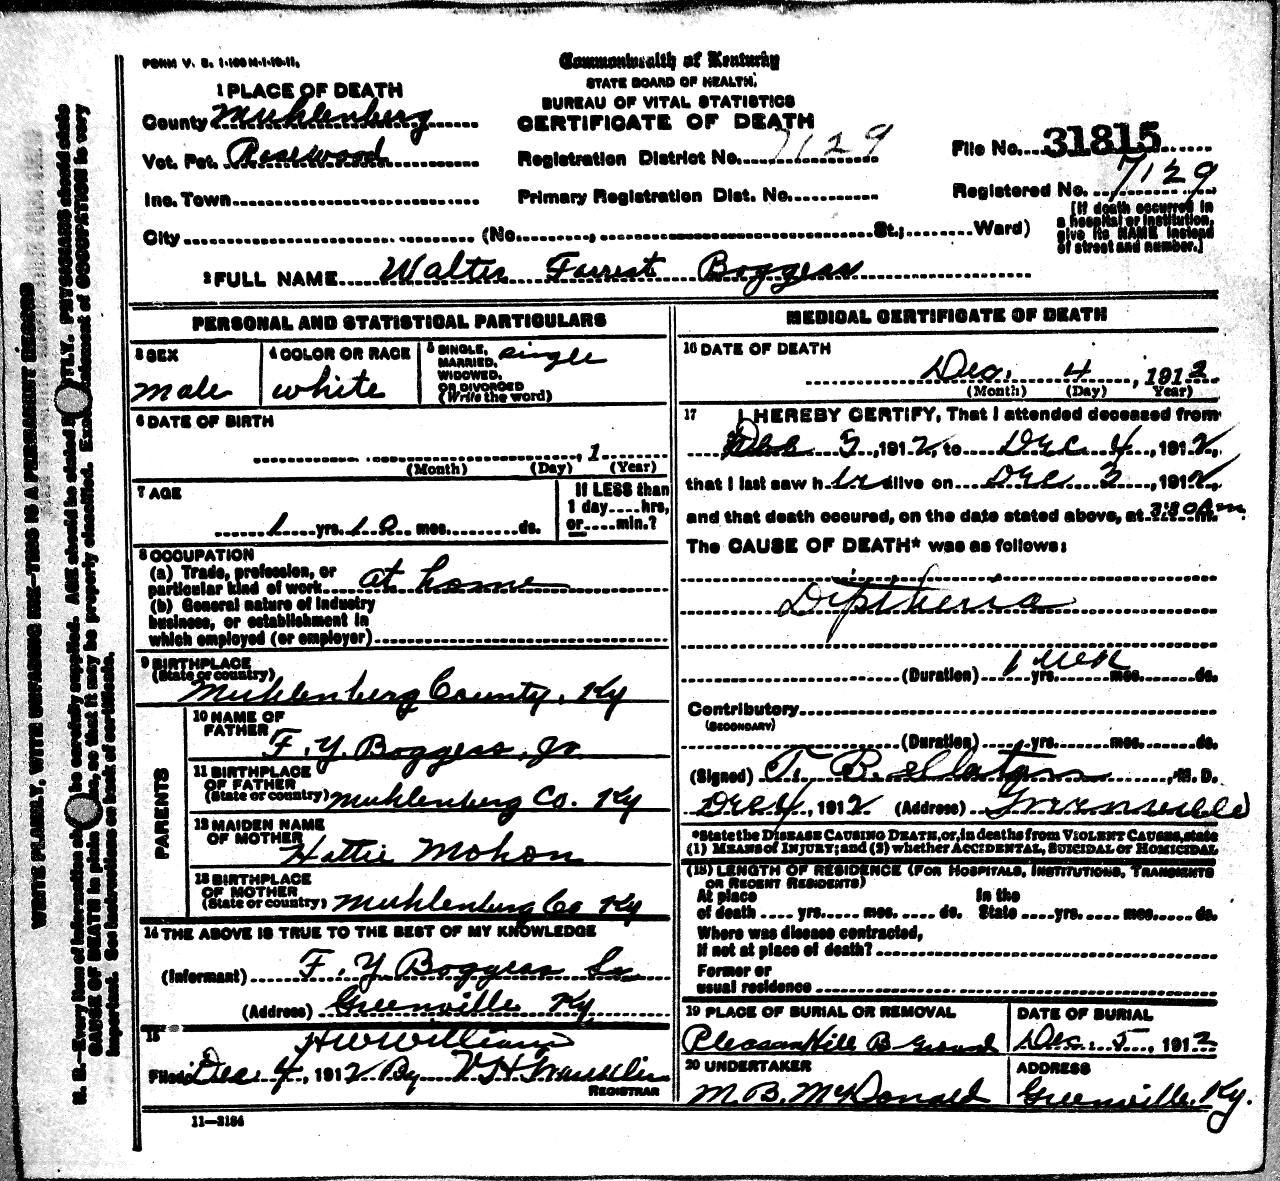 FORM V. S. 1-100M-1-10-11.
Commonwealth of Kentucky
STATE BOARD OF HEALTH.
BUREAU OF VITAL STATISTICS
CERTIFICATE OF DEATH
1 PLACE OF DEATH
County Muhlenberg
Vot. Pct. Rosewood
Inc. Town
City (No. , St.; Ward)
Registration District No. 7129
Primary Registration Dist. No.
File No. 31815
Registered No. 7129
[If death occurred in
a hospital or institution,
give its NAME instead
of street and number.]
2 FULL NAME Walter Forrest Boggess
PERSONAL AND STATISTICAL PARTICULARS
3 SEX
male
4 COLOR OR RACE
white
5 SINGLE, MARRIED, WIDOWED, OR DIVORCED (Write the word) single
6 DATE OF BIRTH
, 1
(Month) (Day) (Year)
7 AGE
1 yrs. 10 mos. ds.
If LESS than
1 day hrs.
or min.?
8 OCCUPATION
(a) Trade, profession, or
particular kind of work at home
(b) General nature of industry
business, or establishment in
which employed (or employer)
9 BIRTHPLACE
(State or country)
Muhlenberg County, Ky
PARENTS
10 NAME OF
FATHER
F. Y. Boggess, Jr.
11 BIRTHPLACE
OF FATHER
(State or country) Muhlenberg Co. Ky
12 MAIDEN NAME
OF MOTHER
Hattie Mohon
13 BIRTHPLACE
OF MOTHER
(State or country) Muhlenburg Co Ky
14 THE ABOVE IS TRUE TO THE BEST OF MY KNOWLEDGE
(Informant) F. Y Boggess Sr
(Address) Greenville Ky
15
HW William
Filed Dec 4, 1912 By V H
REGISTRAR
11—3184
MEDICAL CERTIFICATE OF DEATH
16 DATE OF DEATH
Dec. 4, 1912
(Month) (Day) Year)
17 I HEREBY CERTIFY, That I attended deceased from
5, 1912, to Dec 4, 1912,
that I last saw h alive on Dec 3, 1912,
and that death occured, on the date stated above, at 3:30 am.
The CAUSE OF DEATH* was as follows:
Diptheria
(Duration) 1 week yrs. mos. ds.
Contributory
(SECONDARY)
(Duration) yrs. mos. ds.
(Signed) T. B. , M. D.
Dec 4, 1912 (Address) Greenville
*State the DISEASE CAUSING DEATH, or, in deaths from VIOLENT CAUSES, state
(1) MEANS OF INJURY; and (2) whether ACCIDENTAL, SUICIDAL or HOMICIDAL
(18) LENGTH OF RESIDENCE (FOR HOSPITALS, INSTITUTIONS, TRANSIENTS
OR RECENT RESIDENTS)
At place In the
of death yrs. mos. ds. State yrs. mos. ds.
Where was disease contracted,
if not at place of death?
Former or
usual residence
19 PLACE OF BURIAL OR REMOVAL
Pleasant Hill B Ground
DATE OF BURIAL
Dec. 5, 1912
20 UNDERTAKER
M. B. McDonald
ADDRESS
Greenville, Ky.
WRITE PLAINLY, WITH UNFADING INK—THIS IS A PERMANENT RECORD
N. B.—Every item of information be carefully supplied. AGE should be stated PHYSICIANS should state
CAUSE OF DEATH in plain so that it may be properly classified. statement of OCCUPATION is very
important. See instructions on back of certificate.